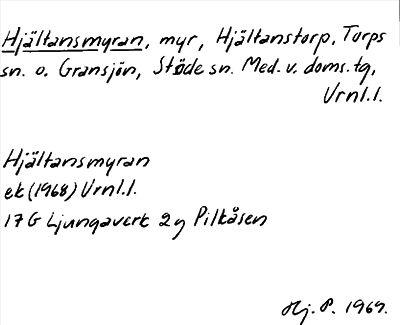 Hjältansmyran, myr, Hjältanstorp, Torps
sn. o. Gransjön, Stöde sn. Med. v. doms.tg,
Vrnl.l.
Hjältansmyran
ek (1968) Vrnl.l.
17G Ljungaverk 2g Pilkåsen
Hj. P. 1969.